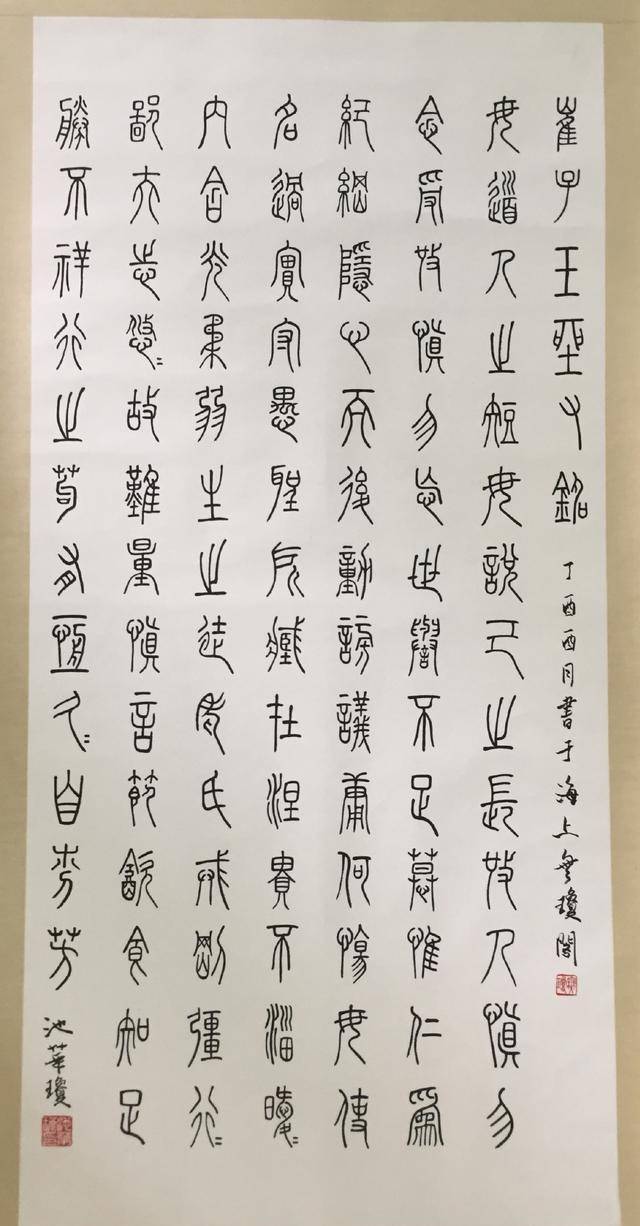 崔子玉座右銘 丁酉酉月書于海上瓊閣
毋道人之短毋說己之長施人慎勿
念受施慎勿忘世譽不足慕惟仁為
紀綱隱心而後動謗議庸何傷毋使
名過實守愚聖所臧在涅貴不淄曖〻
內含光柔弱生之徒老氏戒剛彊行〻
鄙夫志悠〻故難量慎言節飲食知足
勝不祥行之苟有恆久〻自芬芳 池華瓊